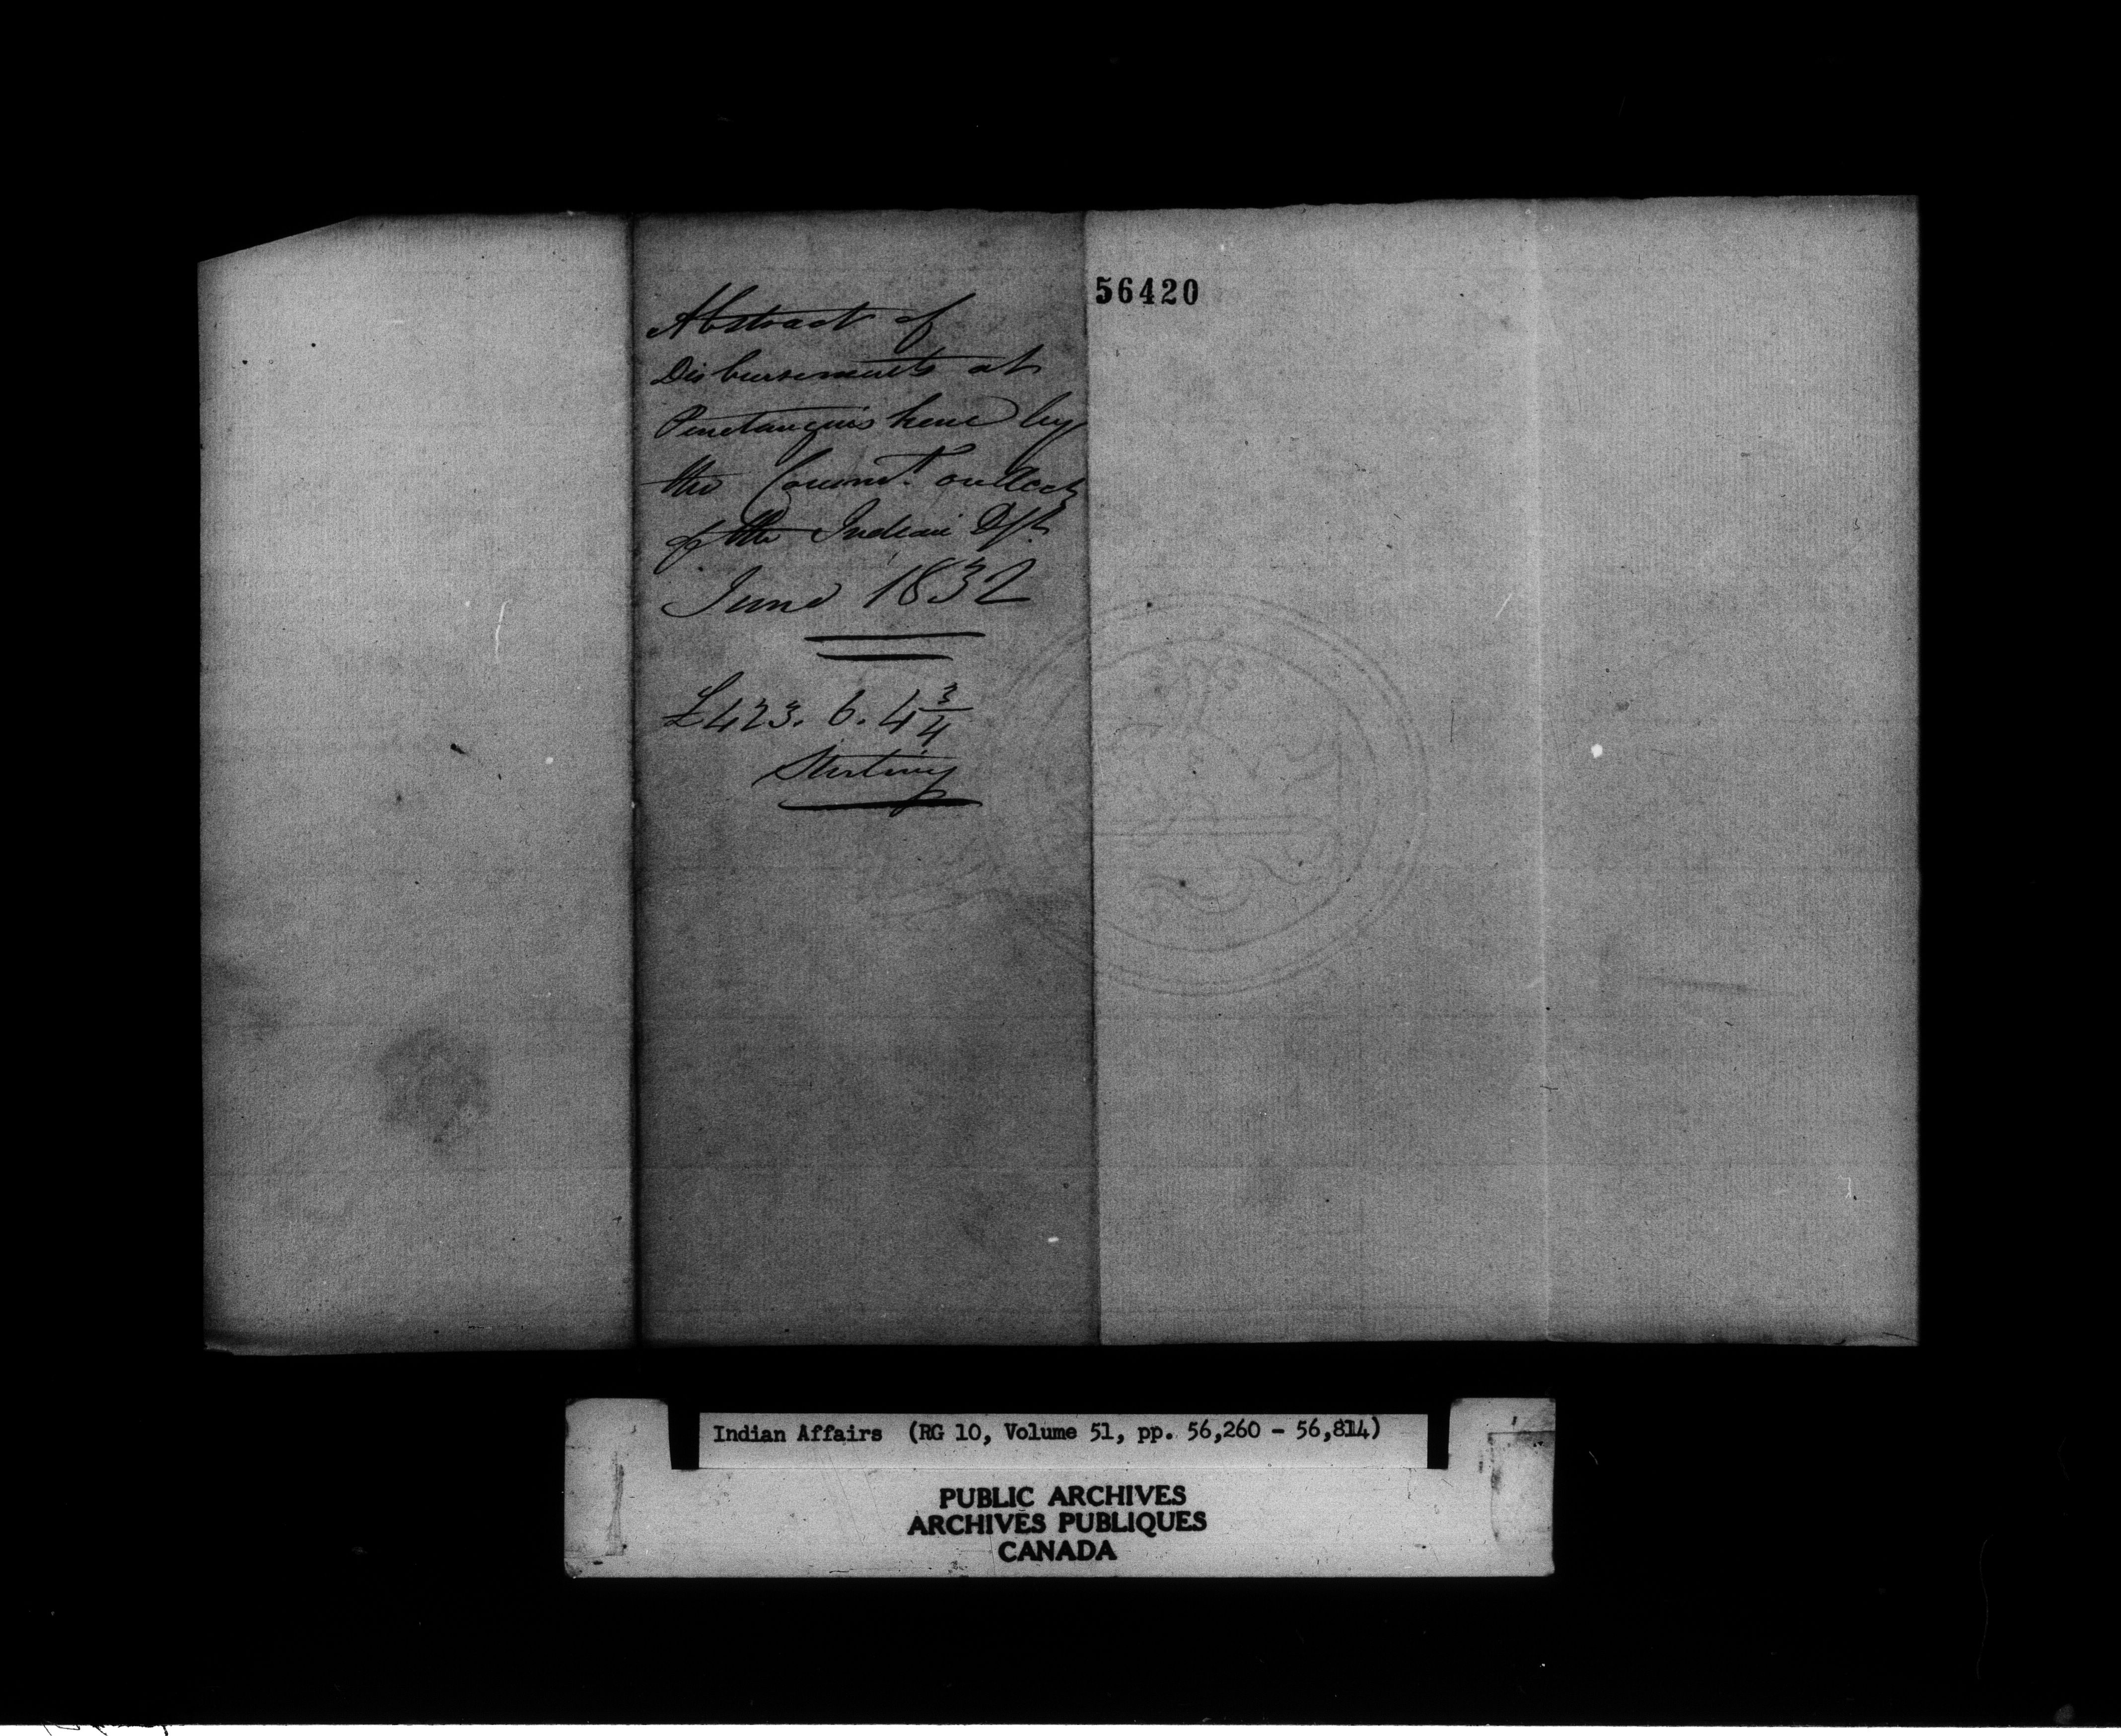 Abstract of
Disbursements at
Penetanguishene by
the Commt. on Acct
of the Indian Dpt.
June 1832
£423. 6. 4 3/4
Sterling
56420
Indian Affairs (RG 10, Volume 51, pp. 56,260 - 56,814)
PUBLIC ARCHIVES
ARCHIVES PUBLIQUES
CANADA